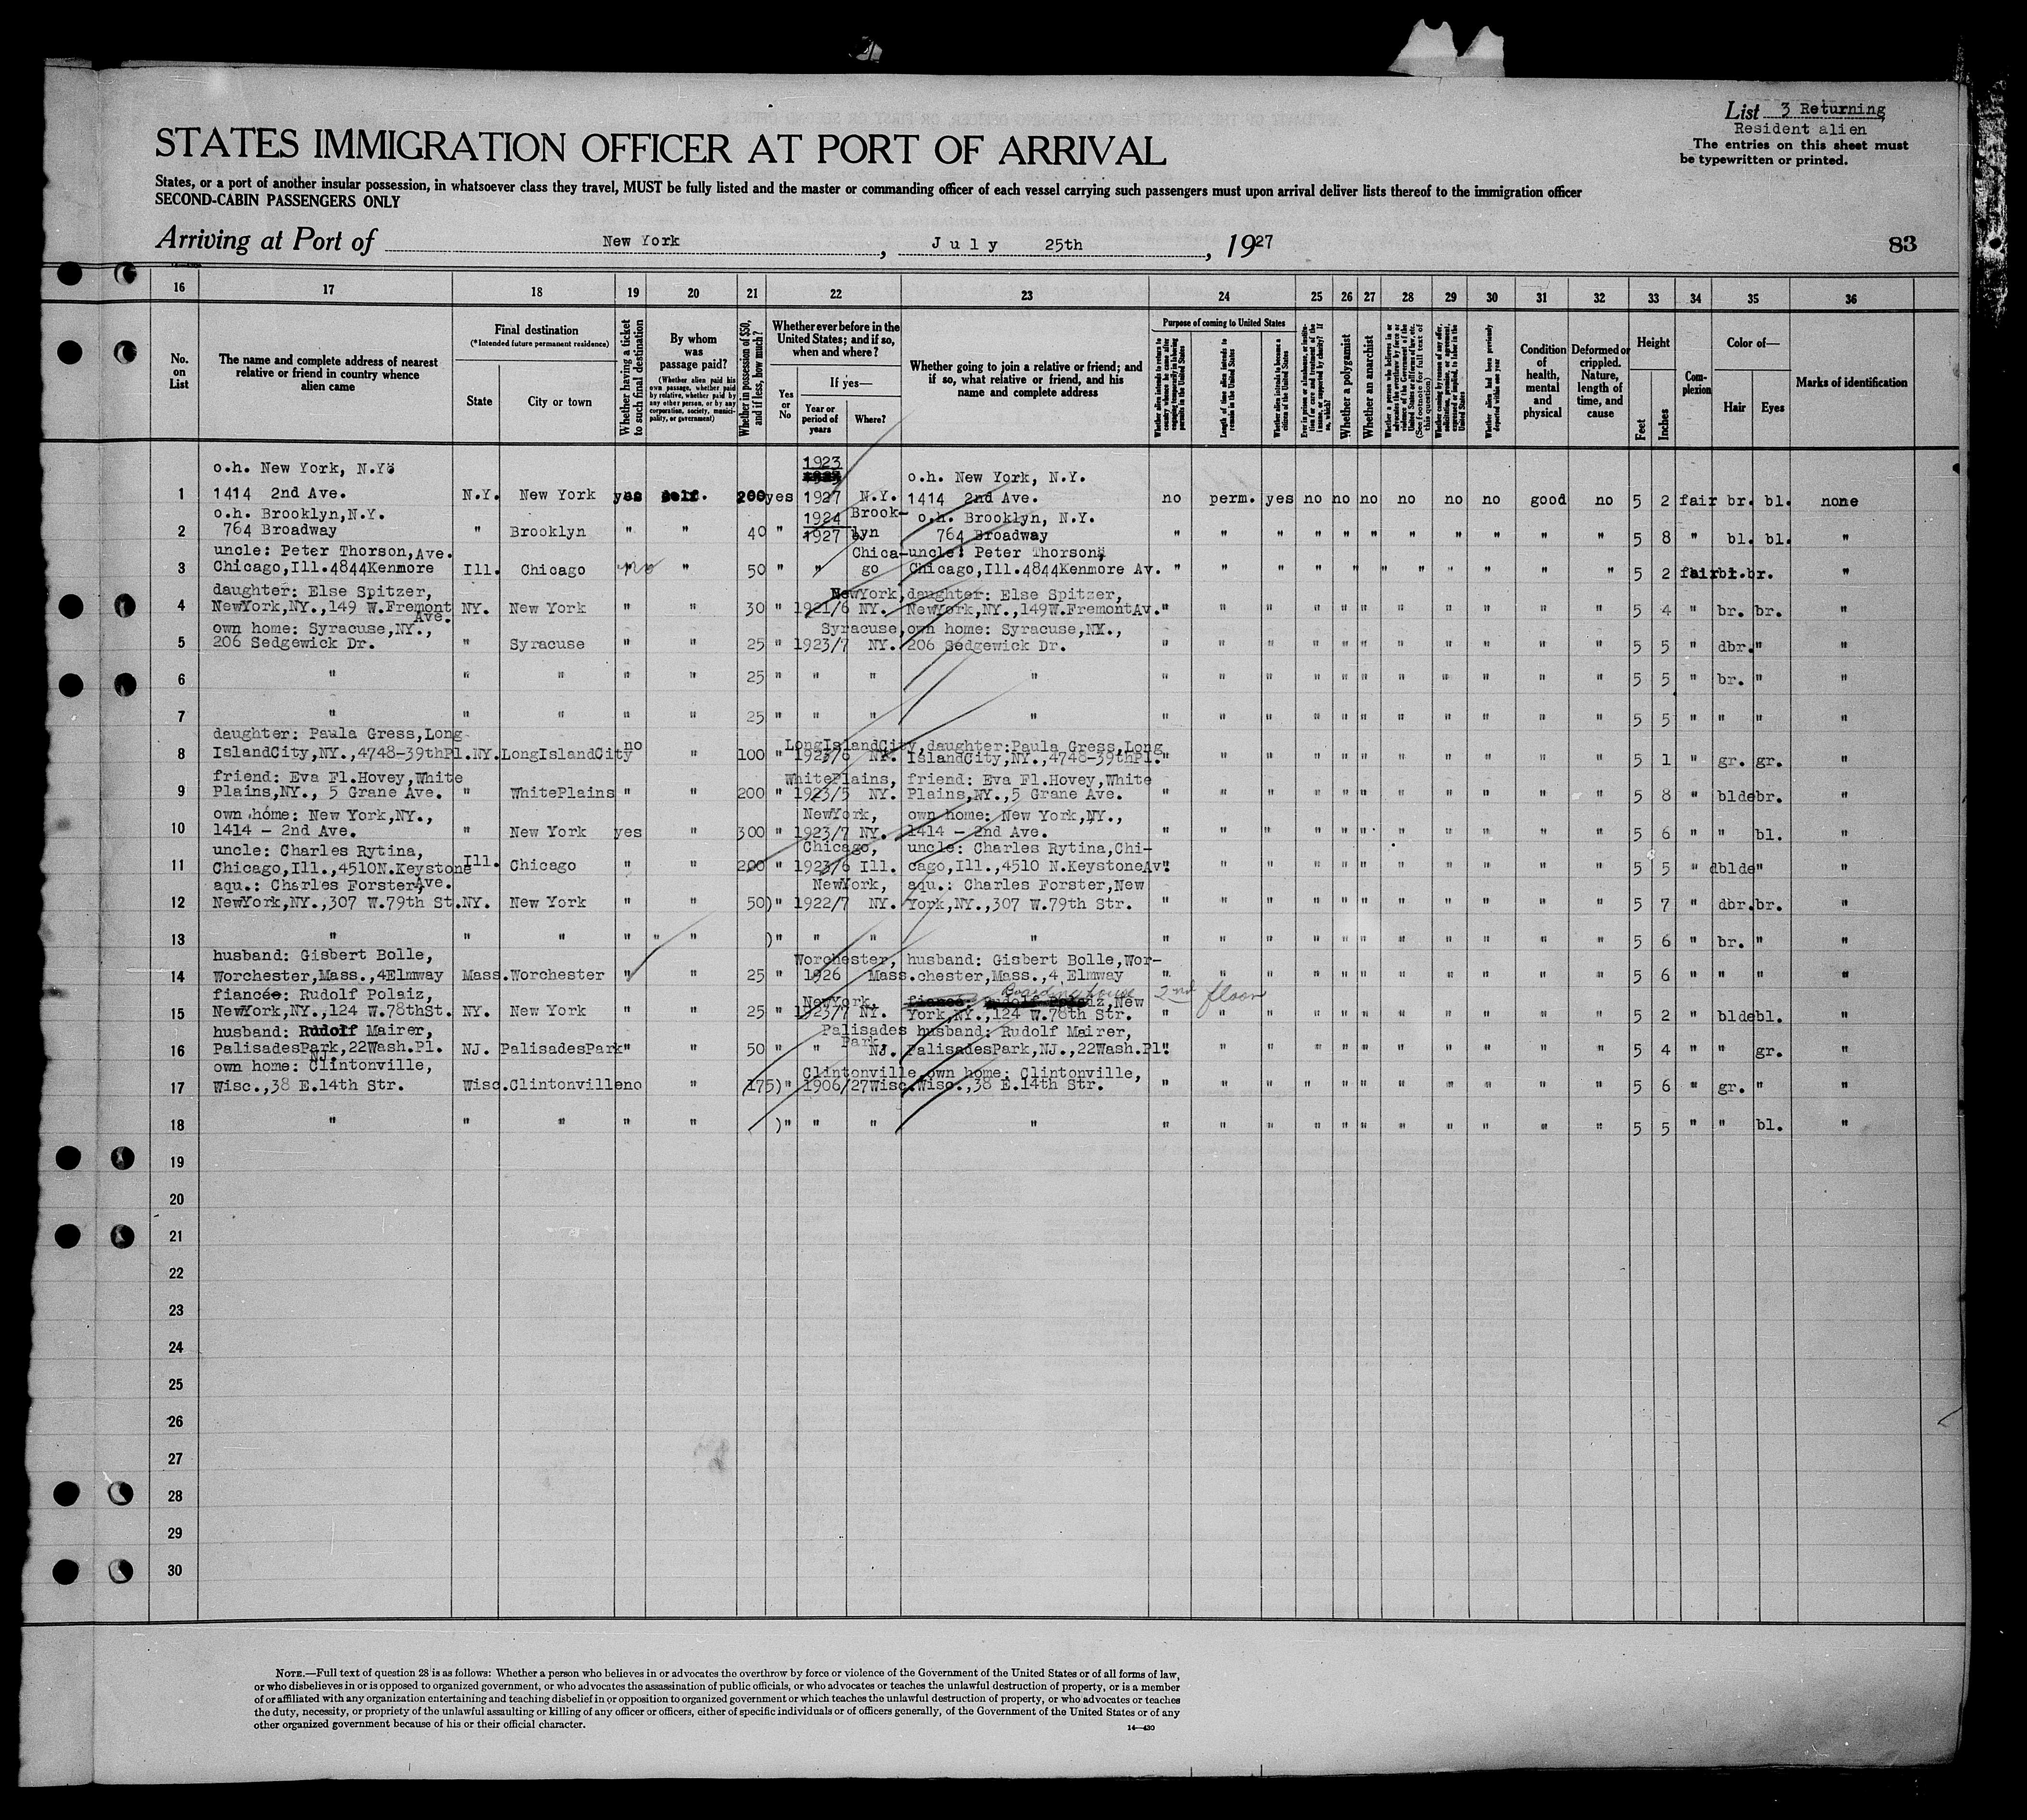 List 3 Returning
Resident alien
The entries on this sheet must
be typewritten or printed.
STATES IMMIGRATION OFFICER AT PORT OF ARRIVAL
States, or a port of another insular possession, in whatsoever class they travel, MUST be fully listed and the master or commanding officer of each vessel carrying such passengers must upon arrival deliver lists thereof to the immigration officer
SECOND-CABIN PASSENGERS ONLY
Arriving at Port of New York, July 25th, 1927
83
16 17 18 19 20 21 22 23 24 25 26 27 28 29 30 31 32 33 34 35 36
No. on List
The name and complete address of nearest relative or friend in country whence alien came
Final destination
(*Intended future permanent residence)
State
City or town
Whether having a ticket to such final destination
By whom was passage paid?
(Whether alien paid his own passage, whether paid by relative, whether paid by any other person, or by any corporation, society, municipality, or government)
Whether in possession of $50, and if less, how much?
Whether ever before in the United States; and if so, when and where?
Yes or No
If yes—
Year or period of years
Where?
Whether going to join a relative or friend; and if so, what relative or friend, and his name and complete address
Purpose of coming to United States
Whether alien intends to return to country whence he came after engaging temporarily in laboring pursuits in the United States
Length of time alien intends to remain in the United States
Whether alien intends to become a citizen of the United States
Ever in prison or almshouse, or institution for care and treatment of the insane, or supported by charity? If so, which?
Whether a polygamist
Whether an anarchist
Whether a person who believes in or advocates the overthrow by force or violence of the Government of the United States or all forms of law, etc. (See footnote for full text of this question)
Whether coming by reason of any offer, solicitation, promise, or agreement, expressed or implied, to labor in the United States
Whether alien had been previously deported within one year
Condition of health, mental and physical
Deformed or crippled. Nature, length of time, and cause
Height
Feet
Inches
Complexion
Color of—
Hair
Eyes
Marks of identification
o.h. New York, N.Y. 1923 o.h. New York, N.Y.
1 1414 2nd Ave. N.Y. New York yes self. 200 yes 1927 N.Y. 1414 2nd Ave. no perm. yes no no no no no no good no 5 2 fair br. bl. none
o.h. Brooklyn,N.Y. 1924 Brook- o.h. Brooklyn, N.Y.
2 764 Broadway " Brooklyn " " 40 " 1927 lyn 764 Broadway " " " " " " " " " " " 5 8 " bl. bl. "
uncle: Peter Thorson,Ave. Chica- uncle: Peter Thorson,
3 Chicago,Ill.4844Kenmore Ill. Chicago no " 50 " " go Chicago,Ill.4844Kenmore Av. " " " " " " " " " " " " 5 2 fair br. br. "
daughter: Else Spitzer, NewYork, daughter: Else Spitzer,
4 NewYork,NY.,149 W.Fremont NY. New York " " 30 " 1921/6 NY. NewYork,NY.,149W.FremontAv. " " " " " " " " " " " 5 4 " br. br. "
Ave.
own home: Syracuse,NY., Syracuse, own home: Syracuse,NY.,
5 206 Sedgewick Dr. " Syracuse " " 25 " 1923/7 NY. 206 Sedgewick Dr. " " " " " " " " " " " 5 5 " dbr. " "
6 " " " " " 25 " " " " " " " " " " " " " " " 5 5 " br. " "
7 " " " " " 25 " " " " " " " " " " " " " " " 5 5 " " " "
daughter: Paula Gress,Long no LongIslandCity, daughter:Paula Gress,Long
8 IslandCity,NY.,4748-39thPl. NY. LongIslandCity " 100 " 1923/6 NY. IslandCity,NY.,4748-39thPl. " " " " " " " " " " " 5 1 " gr. gr. "
friend: Eva Fl.Hovey,White WhitePlains, friend: Eva Fl.Hovey,White
9 Plains,NY., 5 Grane Ave. " WhitePlains " " 200 " 1923/5 NY. Plains,NY.,5 Grane Ave. " " " " " " " " " " " 5 8 " blde br. "
own home: New York,NY., NewYork, own home: New York,NY.,
10 1414 - 2nd Ave. " New York yes " 300 " 1923/7 NY. 1414 - 2nd Ave. " " " " " " " " " " " 5 6 " " bl. "
uncle: Charles Rytina, Chicago, uncle: Charles Rytina,Chi-
11 Chicago,Ill.,4510N.Keystone Ill. Chicago " " 200 " 1923/6 Ill. cago,Ill.,4510 N.KeystoneAv. " " " " " " " " " " " 5 5 " dblde " "
aqu.: Charles Forster,Ave. NewYork, aqu.: Charles Forster,New
12 NewYork,NY.,307 W.79th St. NY. New York " " 50) " 1922/7 NY. York,NY.,307 W.79th Str. " " " " " " " " " " " 5 7 " dbr. br. "
13 " " " " " " ) " " " " " " " " " " " " " " " 5 6 " br. " "
husband: Gisbert Bolle, Worchester, husband: Gisbert Bolle,Wor-
14 Worchester,Mass.,4Elmway Mass. Worchester " " 25 " 1926 Mass. chester,Mass.,4 Elmway " " " " " " " " " " " 5 6 " " " "
Boardinghouse 2nd floor
fiancée: Rudolf Polaiz, NewYork, fiancé, Rudolf Polaiz,New
15 NewYork,NY.,124 W.78thSt. NY. New York " " 25 " 1923/7 NY. York,NY.,124 W.78th Str. " " " " " " " " " " " 5 2 " blde bl. "
husband: Rudolf Mairer, Palisades Park, husband: Rudolf Mairer,
16 PalisadesPark,22Wash.Pl. NJ. PalisadesPark " " 50 " " NJ. PalisadesPark,NJ.,22Wash.Pl. " " " " " " " " " " " 5 4 " " gr. "
NJ.
own home: Clintonville, Clintonville, own home: Clintonville,
17 Wisc.,38 E.14th Str. Wisc. Clintonville no " (175) " 1906/27 Wisc. Wisc.,38 E.14th Str. " " " " " " " " " " " 5 6 " gr. " "
18 " " " " " ) " " " " " " " " " " " " " " " 5 5 " " bl. "
19
20
21
22
23
24
25
26
27
28
29
30
NOTE.—Full text of question 28 is as follows: Whether a person who believes in or advocates the overthrow by force or violence of the Government of the United States or of all forms of law,
or who disbelieves in or is opposed to organized government, or who advocates the assassination of public officials, or who advocates or teaches the unlawful destruction of property, or is a member
of or affiliated with any organization entertaining and teaching disbelief in or opposition to organized government or which teaches the unlawful destruction of property, or who advocates or teaches
the duty, necessity, or propriety of the unlawful assaulting or killing of any officer or officers, either of specific individuals or of officers generally, of the Government of the United States or of any
other organized government because of his or their official character.
14—430